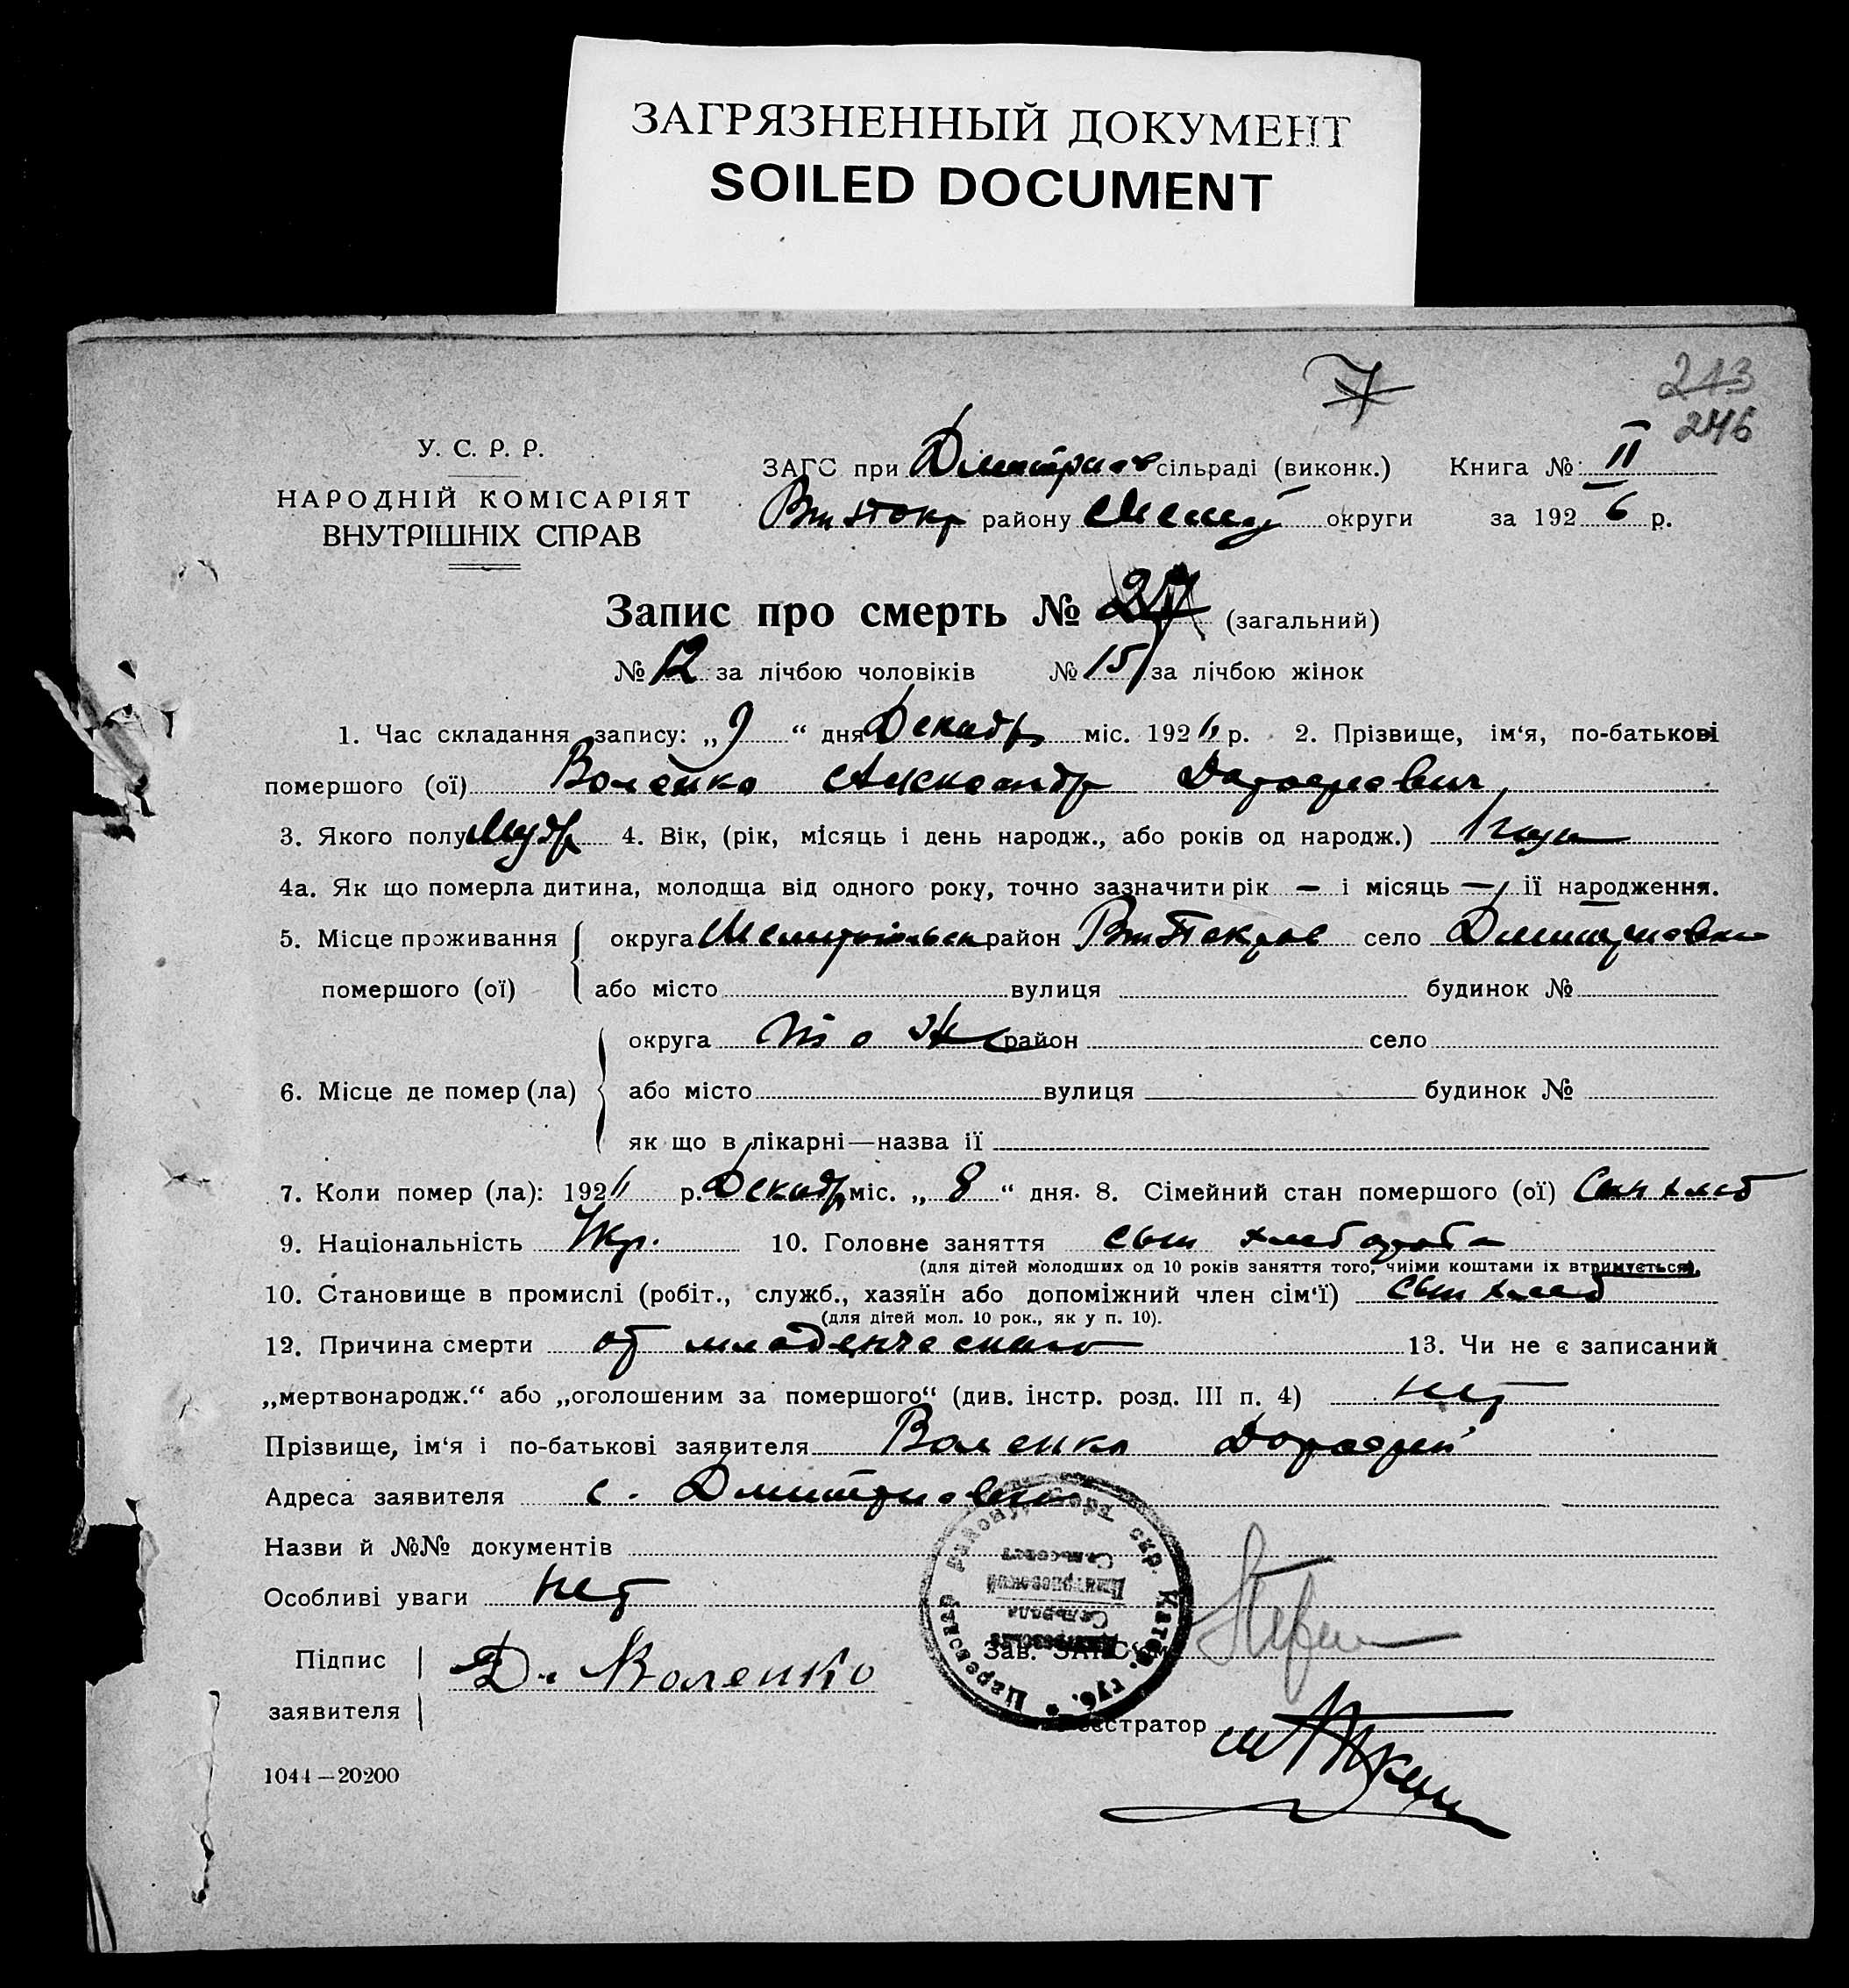 ЗАГРЯЗНЕННЫЙ ДОКУМЕНТ
SOILED DOCUMENT
7
213
246
У. С. Р. Р.
НАРОДНІЙ КОМІСАРІЯТ
ВНУТРІШНІХ СПРАВ
ЗАГС при сільраді (виконк.) Книга № II
району округи за 1926 р.
Запис про смерть № 27 (загальний)
№ 12 за лічбою чоловіків № 15 за лічбою жінок
1. Час складання запису: „9“ дня Декабр міс. 1926 р. 2. Прізвище, ім‘я, по-батькові
помершого (ої) Воленко Александр
3. Якого полу 4. Вік, (рік, місяць і день народж., або років од народж.) 1 года
4а. Як що померла дитина, молодща від одного року, точно зазначити рік — і місяць — її народження.
5. Місце проживання округа район село
помершого (ої) або місто вулиця будинок №
округа то же район село
6. Місце де помер (ла) або місто вулиця будинок №
як що в лікарні—назва її
7. Коли помер (ла): 192 р. Декабр міс. „8“ дня. 8. Сімейний стан помершого (ої) Сын хлеб
9. Національність Укр. 10. Головне заняття сын хлебороба
(для дітей молодших од 10 років заняття того, чиіми коштами іх втримується).
10. Становище в промислі (робіт., служб., хазяїн або допоміжний член сім‘ї) сын хлеб
(для дітей мол. 10 рок., як у п. 10).
12. Причина смерти от младенческого 13. Чи не є записаний
„мертвонародж.“ або „оголошеним за помершого“ (див. інстр. розд. III п. 4) нет
Прізвище, ім‘я і по-батькові заявителя Воленко Дорофей
Адреса заявителя с. Дмитриовки
Назви й №№ документів
Особливі уваги нет
Підпис
заявителя
Д. Воленко
Зав. ЗАГС‘ом
Реєстратор
1044—20200